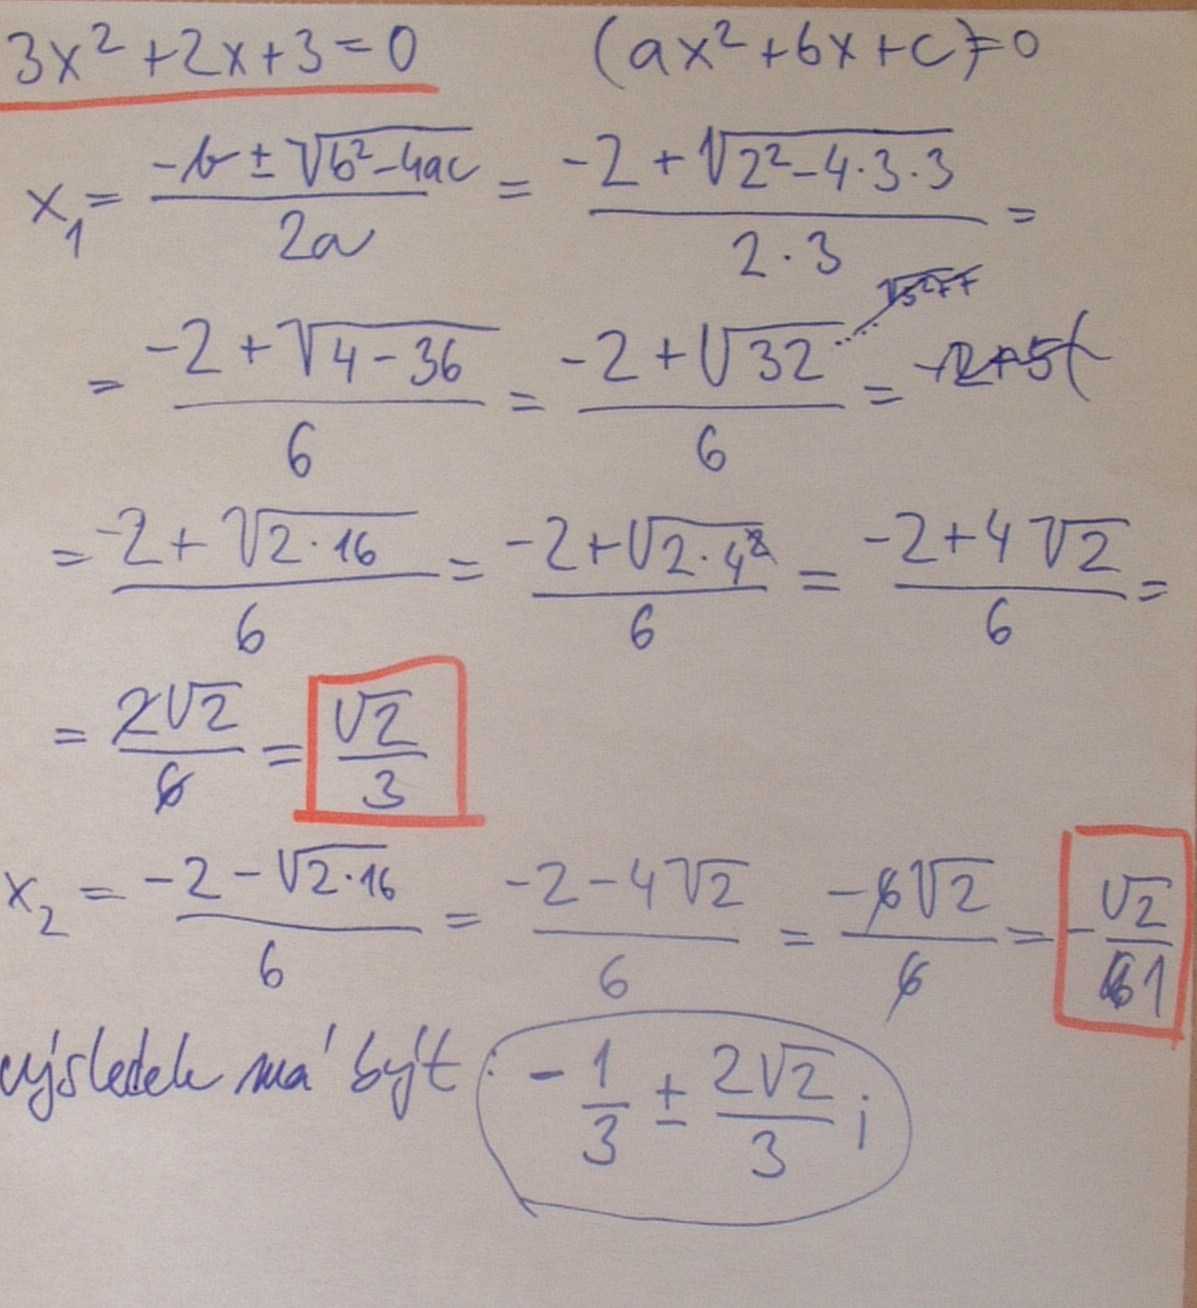 3x² + 2x + 3 = 0 (ax² + bx + c) = 0
x₁ = (-b ± √(b² - 4ac)) / 2a = (-2 + √(2² - 4·3·3)) / 2·3 =
= (-2 + √(4 - 36)) / 6 = (-2 + √32) / 6 =
= (-2 + √(2·16)) / 6 = (-2 + √(2·4²)) / 6 = (-2 + 4√2) / 6 =
= 2√2 / 6 = √2 / 3
x₂ = (-2 - √(2·16)) / 6 = (-2 - 4√2) / 6 = -6√2 / 6 = -√2 / 1
výsledek má být: -1/3 ± 2√2/3 i